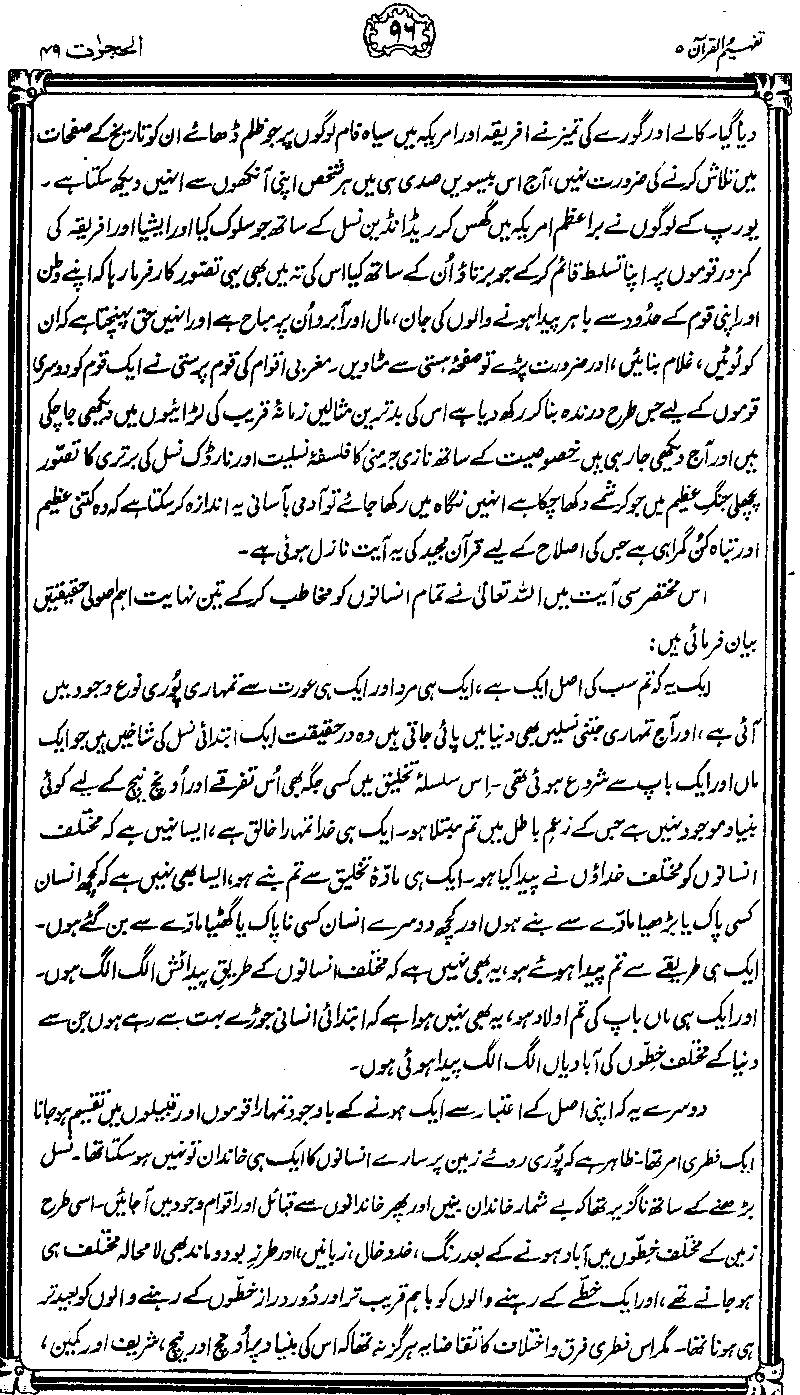 تفہیم القرآن ۵
۹۶
الحجرات ۴۹
دیا گیا۔ کالے اور گورے کی تمیز نے افریقہ اور امریکہ میں سیاہ فام لوگوں پر جو ظلم ڈھائے ان کو تاریخ کے صفحات
میں تلاش کرنے کی ضرورت نہیں، آج اس بیسویں صدی ہی میں ہر شخص اپنی آنکھوں سے انہیں دیکھ سکتا ہے۔
یورپ کے لوگوں نے براعظم امریکہ میں گھس کر ریڈ انڈین نسل کے ساتھ جو سلوک کیا اور ایشیا اور افریقہ کی
کمزور قوموں پر اپنا تسلط قائم کر کے جو برتاؤ اُن کے ساتھ کیا اس کی تہ میں بھی یہی تصوّر کارفرما رہا کہ اپنے وطن
اور اپنی قوم کے حدود سے باہر پیدا ہونے والوں کی جان، مال اور آبرو اُن پر مباح ہے اور انہیں حق پہنچتا ہے کہ ان
کو لُوٹیں، غلام بنائیں، اور ضرورت پڑے تو صفحۂ ہستی سے مٹا دیں۔ مغربی اقوام کی قوم پرستی نے ایک قوم کو دوسری
قوموں کے لیے جس طرح درندہ بنا کر رکھ دیا ہے اس کی بدترین مثالیں زمانۂ قریب کی لڑائیوں میں دیکھی جا چکی
ہیں اور آج دیکھی جا رہی ہیں۔ خصوصیت کے ساتھ نازی جرمنی کا فلسفۂ نسلیت اور نارڈک نسل کی برتری کا تصوّر
پچھلی جنگِ عظیم میں جو کرشمے دکھا چکا ہے انہیں نگاہ میں رکھا جائے تو آدمی بآسانی یہ اندازہ کر سکتا ہے کہ وہ کتنی عظیم
اور تباہ کُن گمراہی ہے جس کی اصلاح کے لیے قرآن مجید کی یہ آیت نازل ہوئی ہے۔
اس مختصر سی آیت میں اللہ تعالیٰ نے تمام انسانوں کو مخاطب کر کے تین نہایت اہم اصولی حقیقتیں
بیان فرمائی ہیں:
ایک یہ کہ تم سب کی اصل ایک ہے، ایک ہی مرد اور ایک ہی عورت سے تمہاری پُوری نوع وجود میں
آئی ہے، اور آج تمہاری جتنی نسلیں بھی دنیا میں پائی جاتی ہیں وہ درحقیقت ایک ابتدائی نسل کی شاخیں ہیں جو ایک
ماں اور ایک باپ سے شروع ہوئی تھی۔ اِس سلسلۂ تخلیق میں کسی جگہ بھی اُس تفرقے اور اُونچ نیچ کے لیے کوئی
بنیاد موجود نہیں ہے جس کے زعمِ باطل میں تم مبتلا ہو۔ ایک ہی خدا تمہارا خالق ہے، ایسا نہیں ہے کہ مختلف
انسانوں کو مختلف خداؤں نے پیدا کیا ہو۔ ایک ہی مادّۂ تخلیق سے تم بنے ہو، ایسا بھی نہیں ہے کہ کچھ انسان
کسی پاک یا بڑھیا مادّے سے بنے ہوں اور کچھ دوسرے انسان کسی ناپاک یا گھٹیا مادّے سے بن گئے ہوں۔
ایک ہی طریقے سے تم پیدا ہوئے ہو، یہ بھی نہیں ہے کہ مختلف انسانوں کے طریقِ پیدائش الگ الگ ہوں۔
اور ایک ہی ماں باپ کی تم اولاد ہو، یہ بھی نہیں ہوا ہے کہ ابتدائی انسانی جوڑے بہت سے رہے ہوں جن سے
دنیا کے مختلف خطّوں کی آبادیاں الگ الگ پیدا ہوئی ہوں۔
دوسرے یہ کہ اپنی اصل کے اعتبار سے ایک ہونے کے باوجود تمہارا قوموں اور قبیلوں میں تقسیم ہو جانا
ایک فطری امر تھا۔ ظاہر ہے کہ پُوری روئے زمین پر سارے انسانوں کا ایک ہی خاندان تو نہیں ہو سکتا تھا۔ نسل
بڑھنے کے ساتھ ناگزیر تھا کہ بے شمار خاندان بنیں اور پھر خاندانوں سے قبائل اور اقوام وجود میں آ جائیں۔ اسی طرح
زمین کے مختلف خطّوں میں آباد ہونے کے بعد رنگ، خدوخال، زبانیں، اور طرزِ بود و ماند بھی لا محالہ مختلف ہی
ہو جانے تھے، اور ایک خطّے کے رہنے والوں کو باہم قریب تر اور دُور دراز خطّوں کے رہنے والوں کو بعید تر
ہی ہونا تھا۔ مگر اس فطری فرق و اختلاف کا تقاضا یہ ہرگز نہ تھا کہ اس کی بنیاد پر اُونچ اور نیچ، شریف اور کمین،